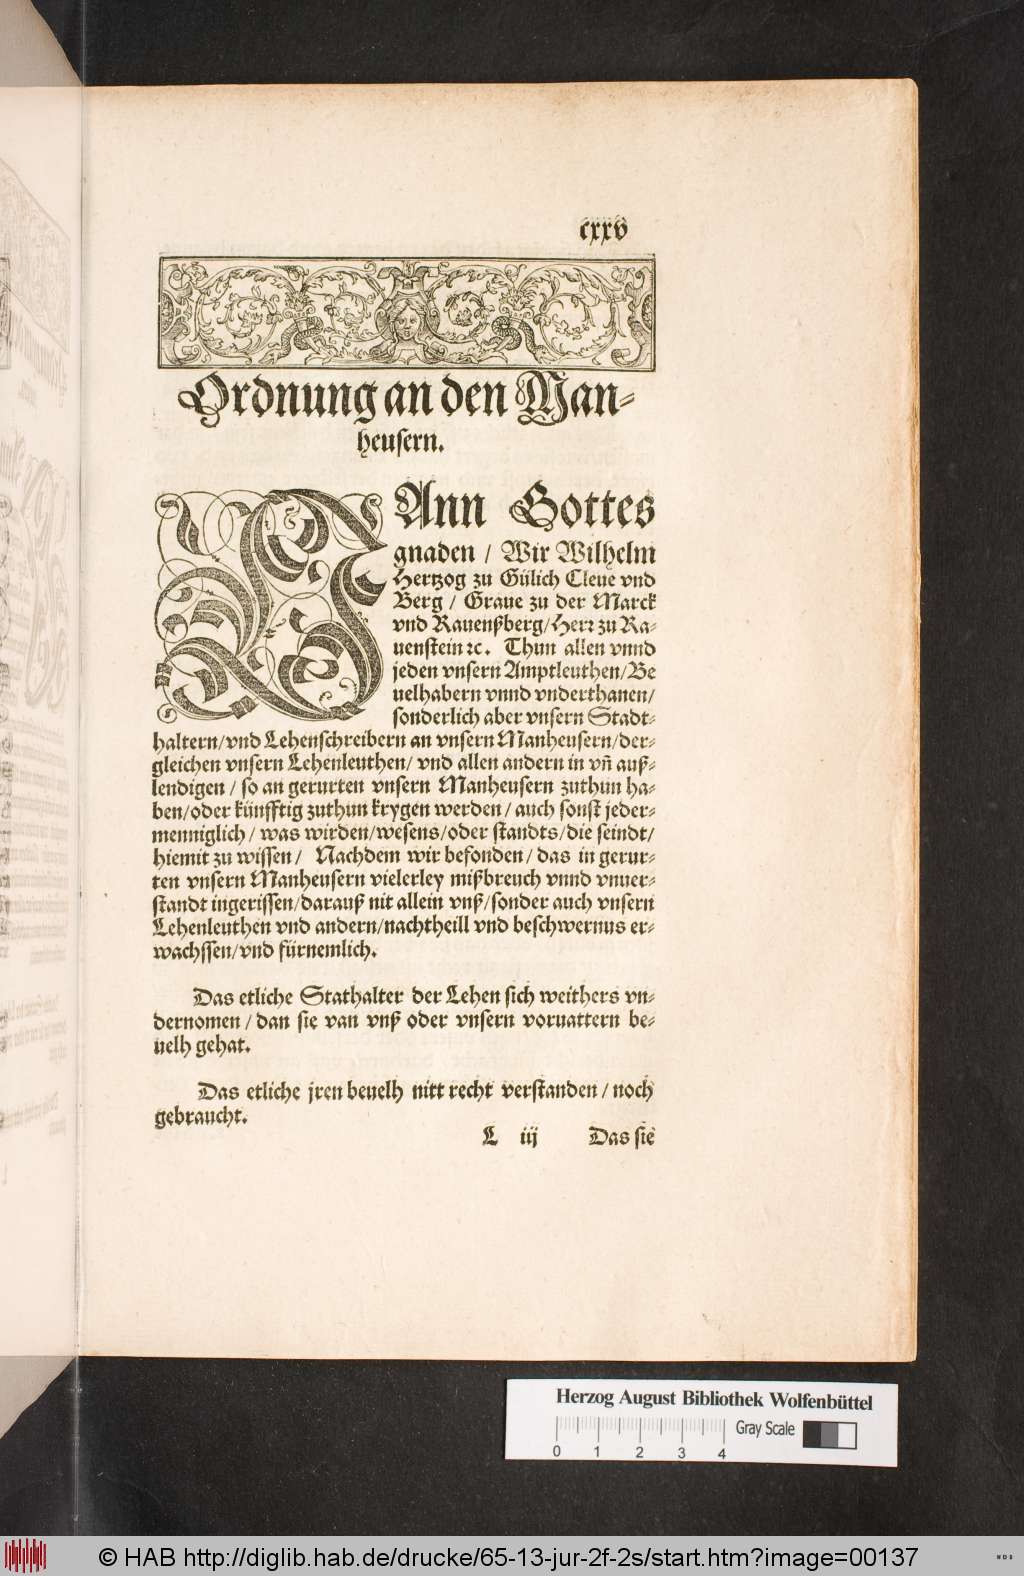 cxxv
Ordnung an den Man-
heusern.
VAnn Gottes
gnaden / Wir Wilhelm
Hertzog zu Gülich Cleue vnd
Berg / Graue zu der Marck
vnd Rauenßberg/Herr zu Ra-
uenstein ꝛc. Thun allen vnnd
jeden vnsern Amptleuthen/Be
uelhabern vnnd vnderthanen/
sonderlich aber vnsern Stadt-
haltern/vnd Lehenschreibern an vnsern Manheusern/der-
gleichen vnsern Lehenleuthen/ vnd allen andern in vñ auß-
lendigen / so an gerurten vnsern Manheusern zuthun ha-
ben/oder künfftig zuthun krygen werden / auch sonst jeder-
menniglich / was wirden/wesens/oder standts/die seindt/
hiemit zu wissen / Nachdem wir befonden/ das in gerur-
ten vnsern Manheusern vielerley mißbreuch vnnd vnuer-
standt ingerissen/darauß nit allein vnß/sonder auch vnsern
Lehenleuthen vnd andern/nachtheill vnd beschwernus er-
wachssen/vnd fürnemlich.
Das etliche Stathalter der Lehen sich weithers vn-
dernomen / dan sie van vnß oder vnsern voruattern be-
uelh gehat.
Das etliche jren beuelh nitt recht verstanden / noch
gebraucht.
L iij Das sie
Herzog August Bibliothek Wolfenbüttel
0 1 2 3 4 Gray Scale
© HAB http://diglib.hab.de/drucke/65-13-jur-2f-2s/start.htm?image=00137